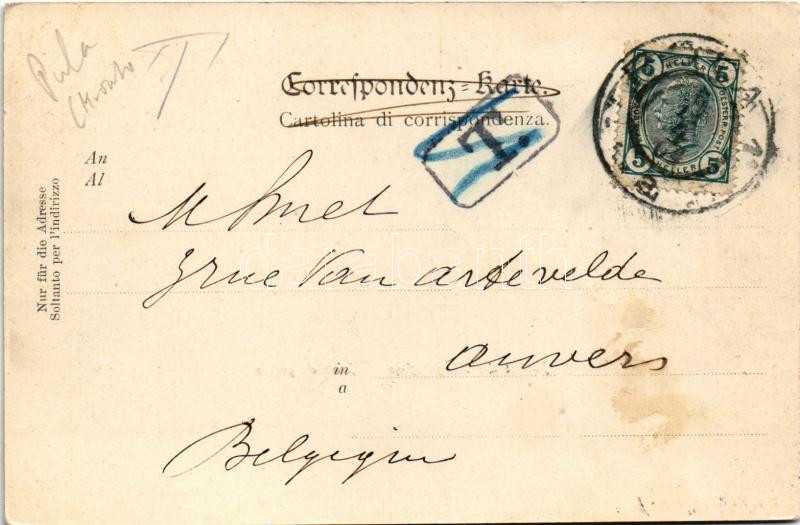 Pula
T
Correspondenz-Karte.
Cartolina di corrispondenza.
T.
5 HELLER 5
5 HELLER 5
An
Al
Nur für die Adresse
Soltanto per l'indirizzo
M Smet
rue Van Artevelde
in
a
Anvers
Belgique
darabanth